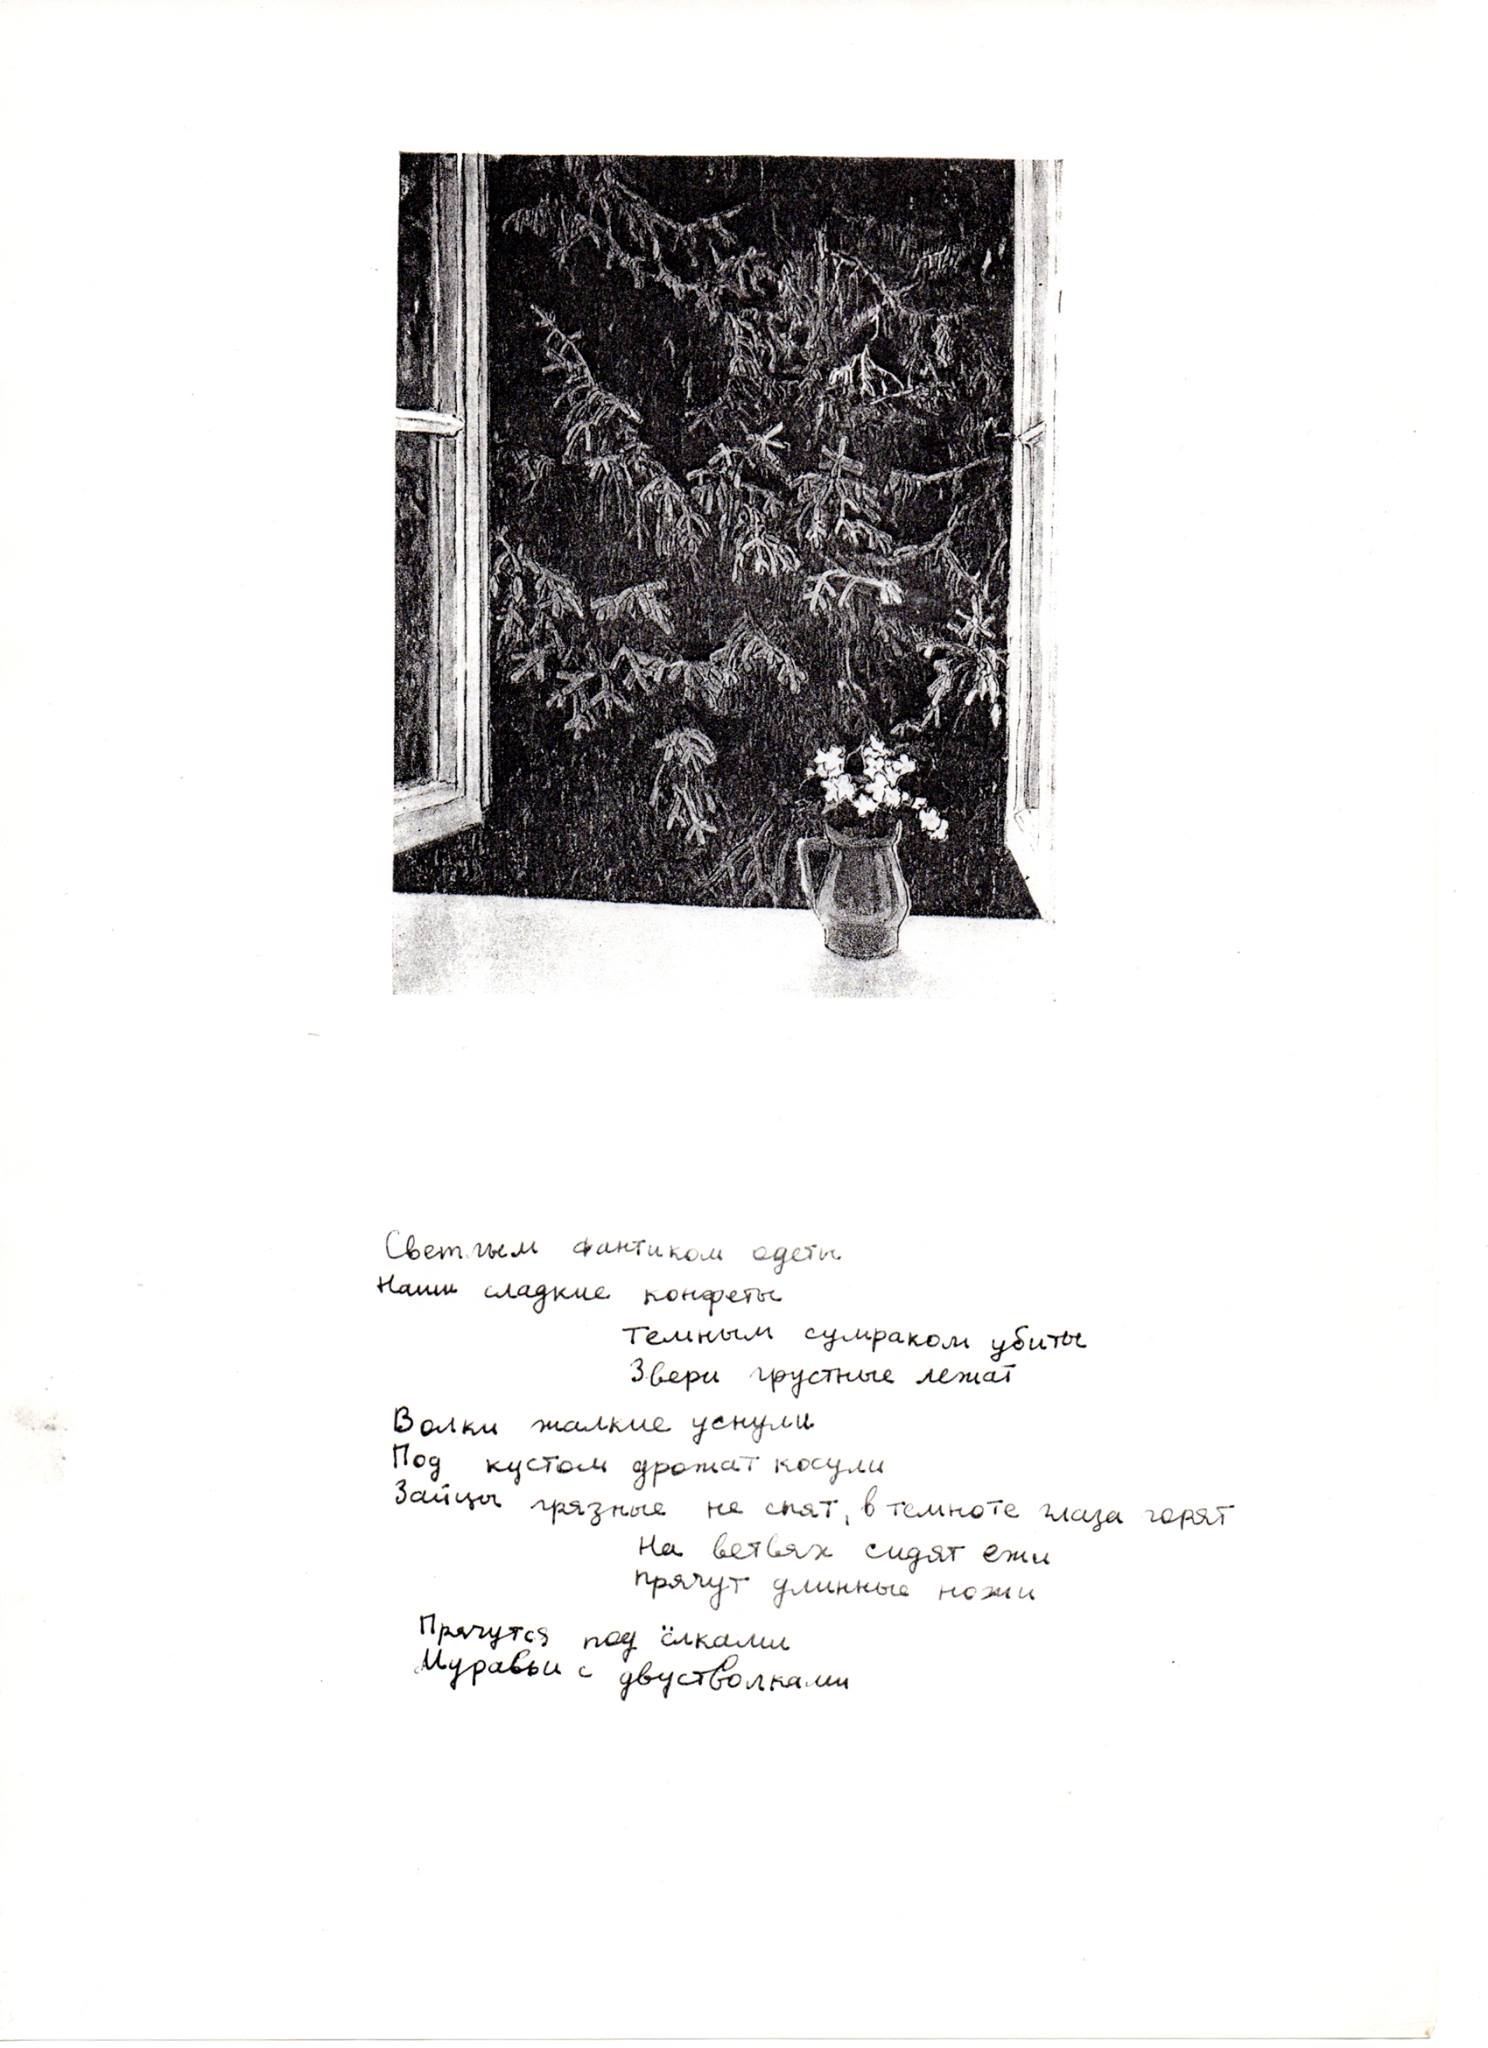 Светлым фантиком одеты
Наши сладкие конфеты
Темным сумраком убиты
Звери грустные лежат
Волки жалкие уснули
Под кустом дрожат косули
Зайцы грязные не спят, в темноте глаза горят
На ветвях сидят ежи
прячут длинные ножи
Прячутся под ёлками
Муравьи с двустволками